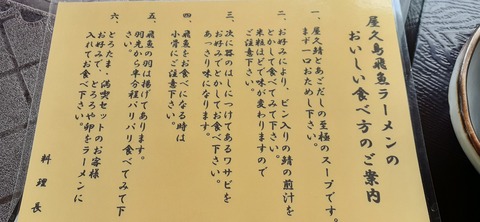 屋久島飛魚ラーメンの
おいしい食べ方のご案内
一、屋久鯖とあごだしの至極のスープです。
まず一口おためし下さい。
二、お好みにより、ビン入りの鯖の煎汁を
とかして食べてみて下さい。
米粒ほどで味が変わりますので
ご注意下さい。
三、次に器のはしにつけてあるワサビを
お好みでとかしてお食べ下さい。
あっさり味になります。
四、飛魚をお食べになる時は
小骨にご注意下さい。
五、飛魚の羽は揚げてあります。
羽先から半分程バリバリ食べてみて下
さい。
六、とろたま・満喫セットのお客様
お好みで、とろろや卵をラーメンに
入れてお食べ下さい。
料理長